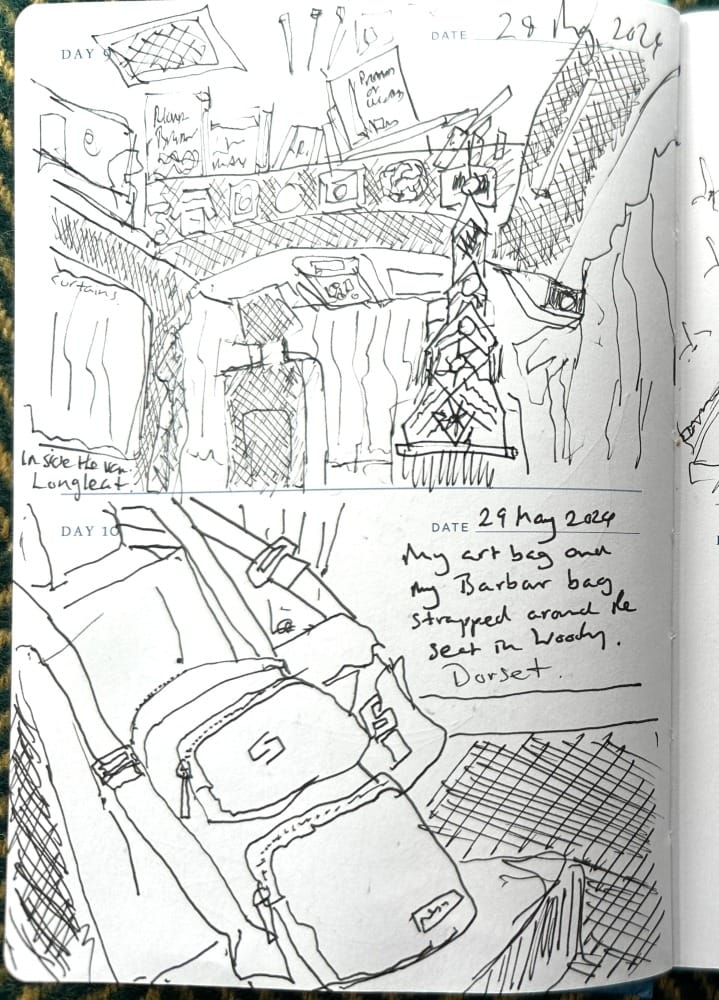 DAY 9
DATE 28 May 2024
curtains
Inside the van.
Longleat.
DAY 10
DATE 29 May 2024
My art bag and
my Barbour bag
strapped around the
seat in Woody.
Dorset.